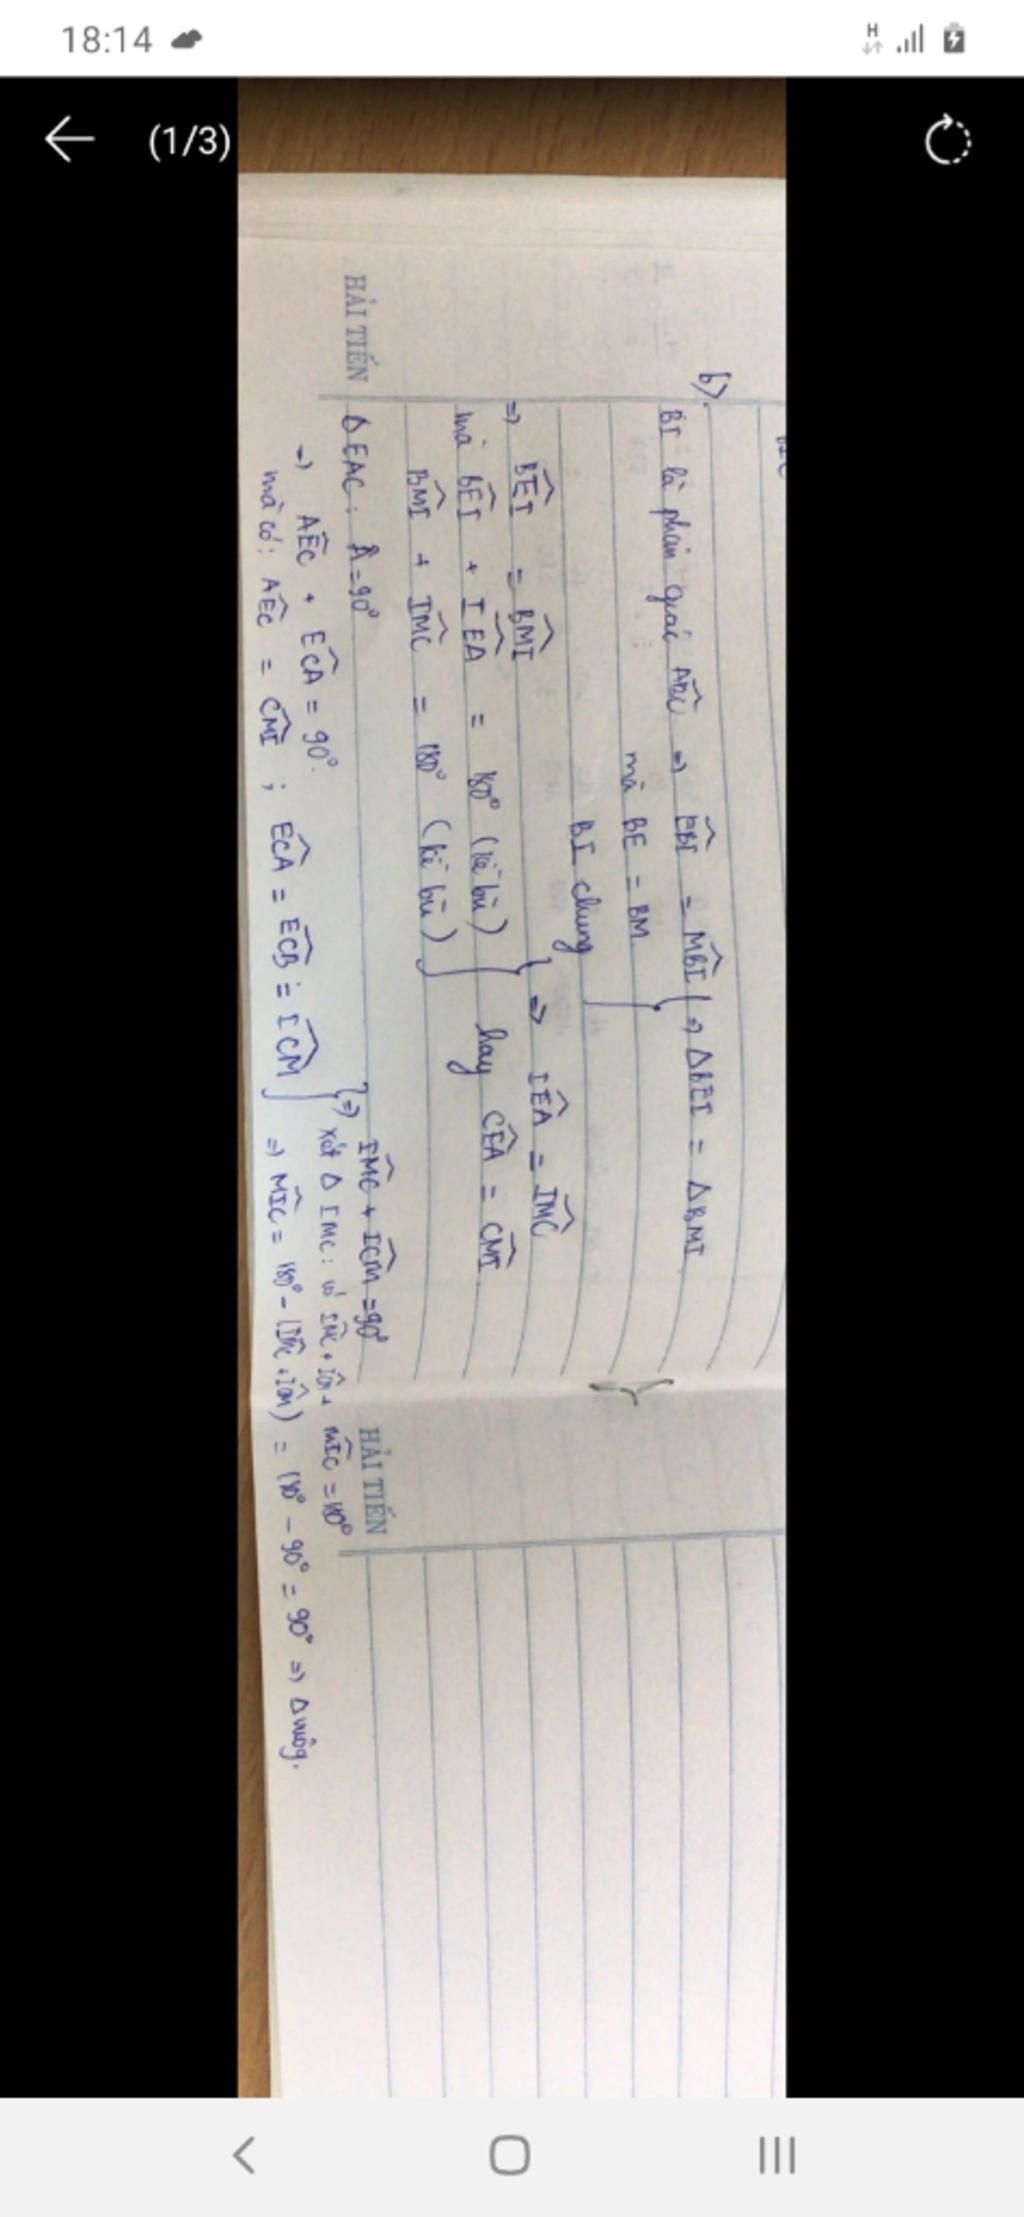 18:14
H
(1/3)
b).
BI là phân giác ABC̑ ⇒ EBȊ = MBȊ
mà BE = BM
BI chung
⇒ ΔBEI = ΔBMI
⇒ BEȊ = BMȊ
mà BEȊ + IEȂ = 180° (kề bù)
BMȊ + IMC̑ = 180° (kề bù)
⇒ IEȂ = IMC̑
hay CEȂ = CMȊ
HẢI TIẾN
ΔEAC: Â = 90°
⇒ AEC̑ + ECȂ = 90°.
mà có: AEC̑ = CMȊ ; ECȂ = ECB̑ = ICM̑
⇒ IMC̑ + ICM̑ = 90°
xét Δ IMC: có IMC̑ + ICM̑ + MIC̑ = 180°
⇒ MIC̑ = 180° - (IMC̑ + ICM̑) = 180° - 90° = 90° ⇒ Δ vuông.
HẢI TIẾN